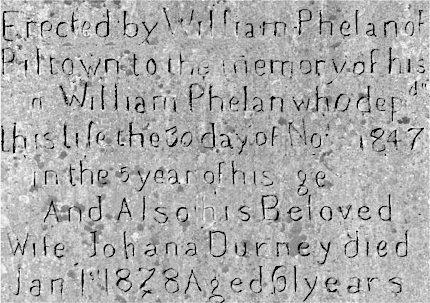 Erected by William Phelan of
Piltown to the memory of his
William Phelan who dep d
this life the 30 day of No 1847
in the 5 year of his ge
And Also his Beloved
Wife Johana Durney died
Jan 1st 1878 Aged 61 years